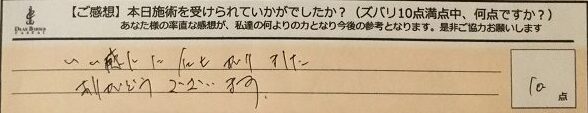 【ご感想】本日施術を受けられていかがでしたか？（ズバリ10点満点中、何点ですか？）
あなた様の率直な感想が、私達の何よりの力となり今後の参考となります。是非ご協力お願いします
いい感じに仕上がりました
ありがとうございます。
10点